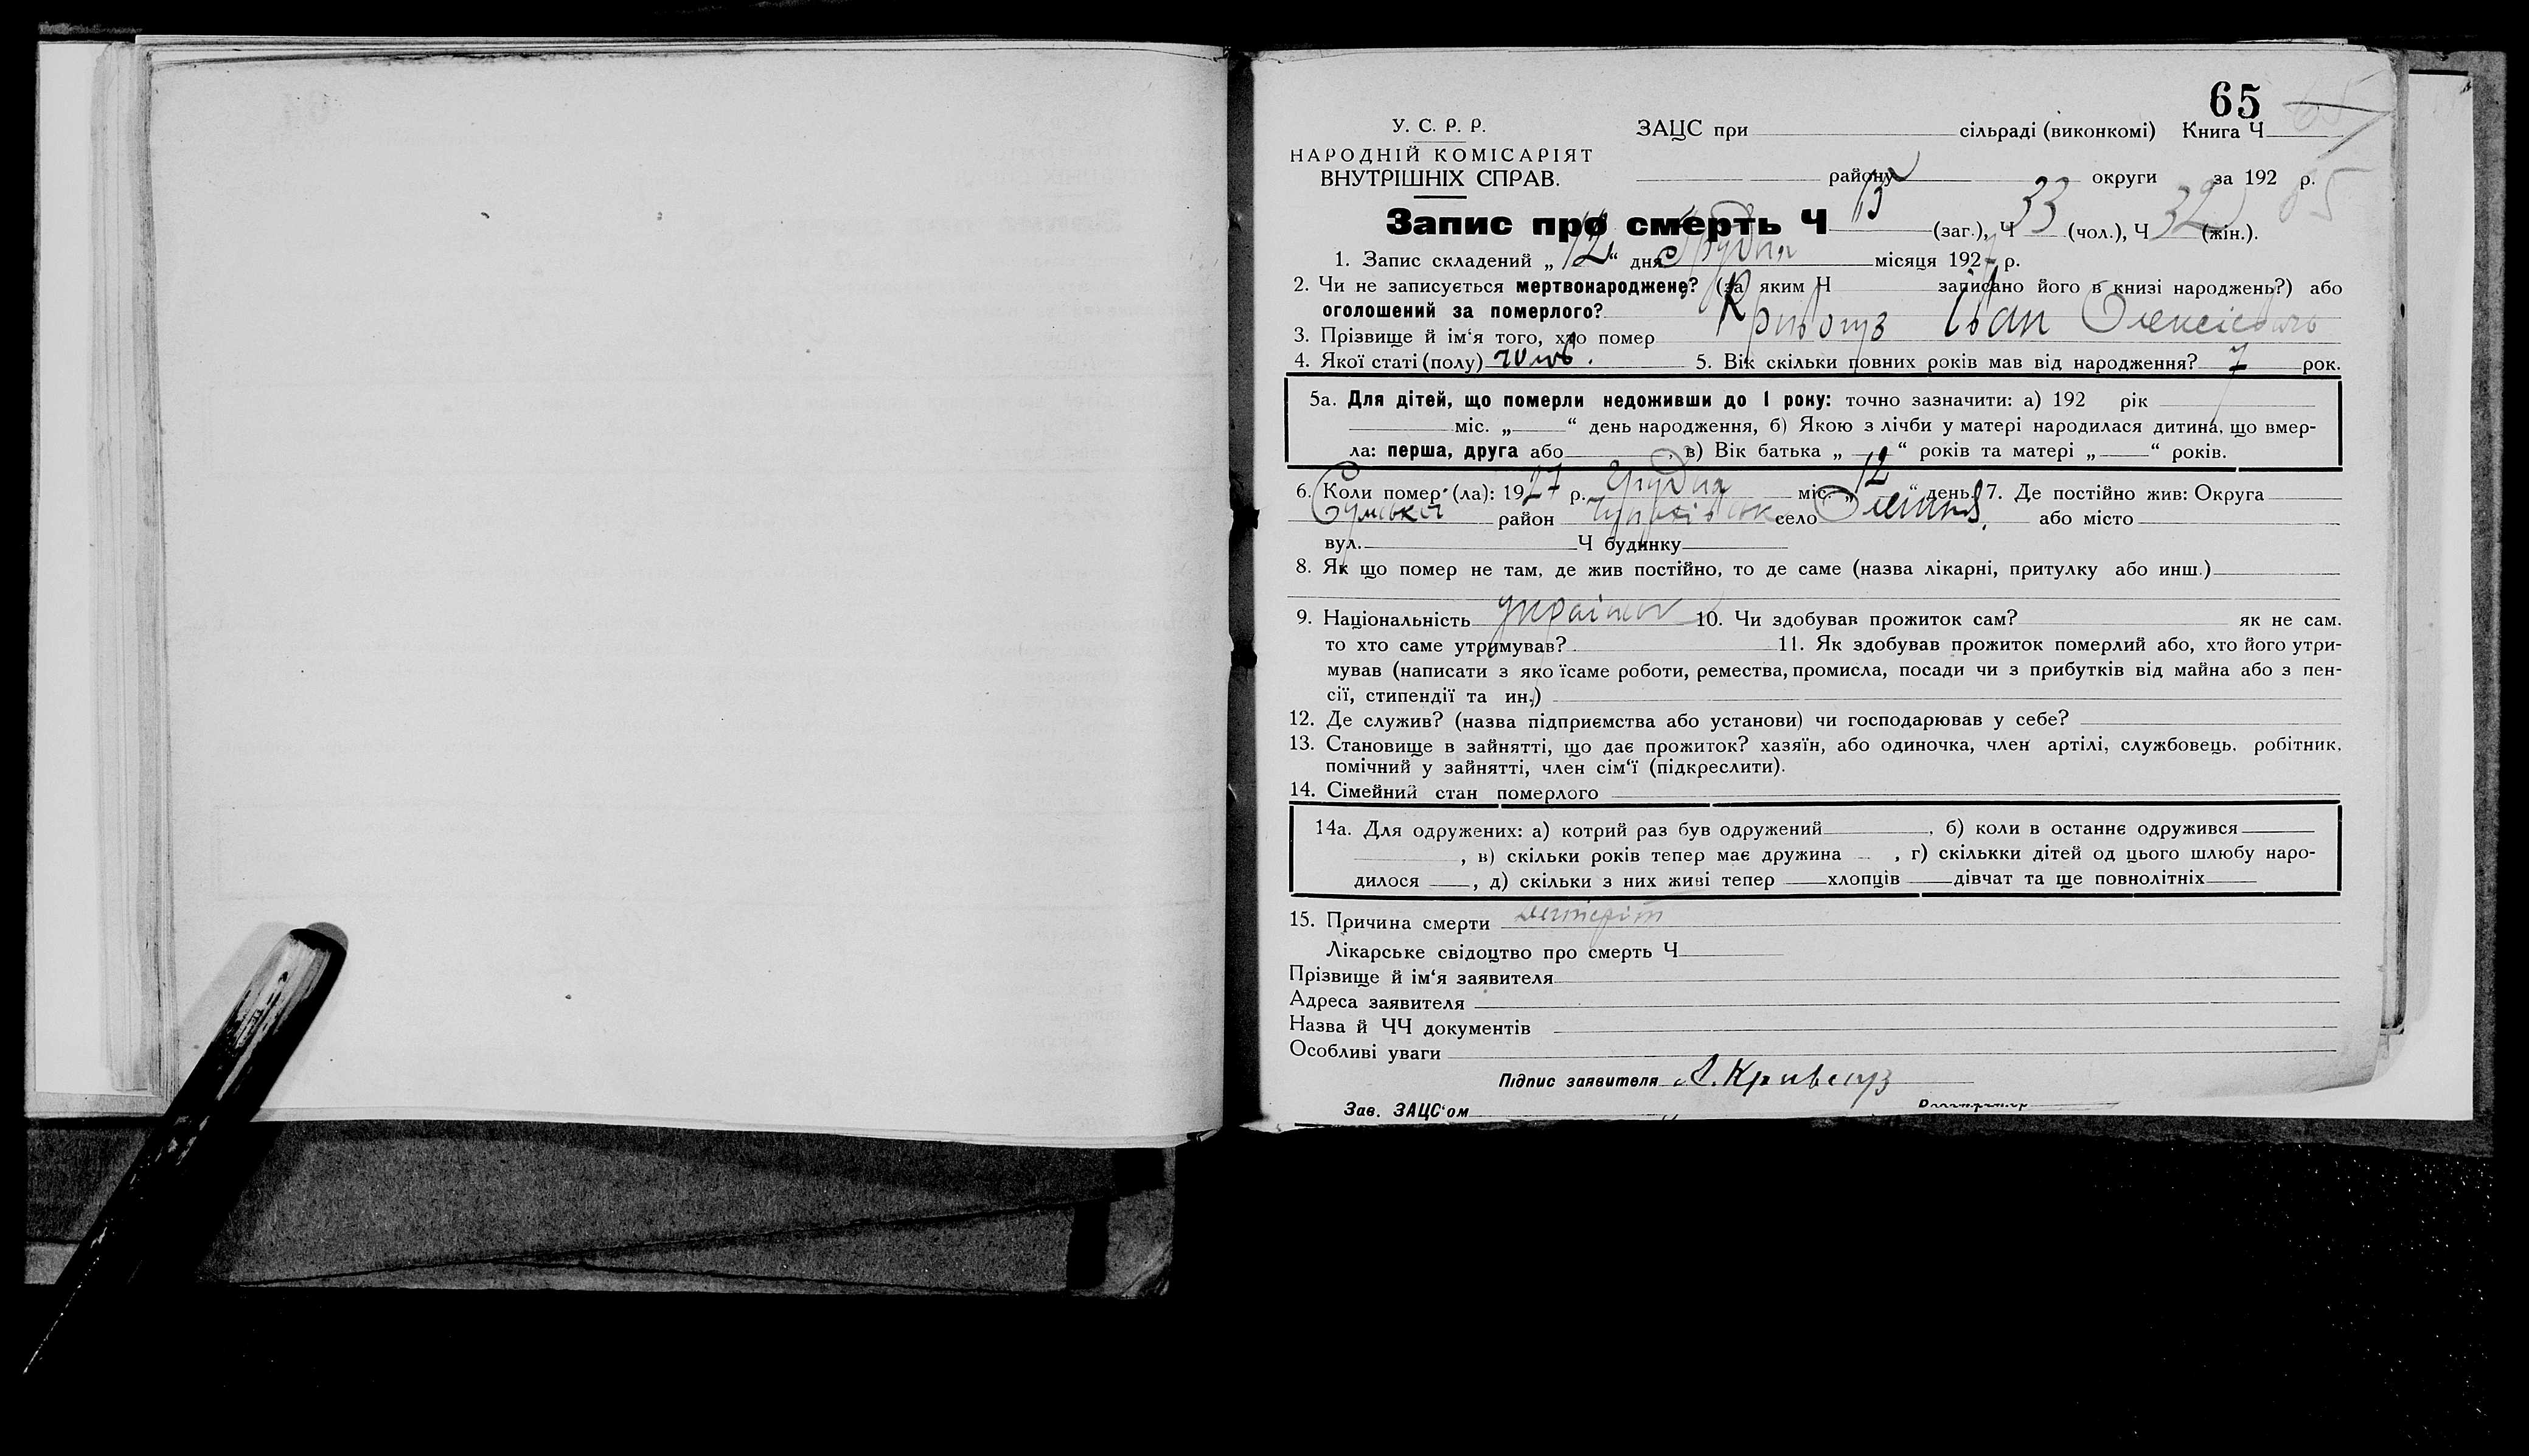 65
У. С. Р. Р.
НАРОДНІЙ КОМІСАРІЯТ
ВНУТРІШНІХ СПРАВ.
ЗАЦС при сільраді (виконкомі) Книга Ч
району округи за 192 р.
Запис про смерть Ч (заг.), Ч 33 (чол.), Ч 32 (жін.).
1. Запис складений „ 12 “ дня Грудня місяця 1927 р.
2. Чи не записується мертвонароджене? (за яким Ч записано його в книзі народжень?) або
оголошений за померлого?
3. Прізвище й ім‘я того, хто помер Кривогуз Іван Олексієвич
4. Якої статі (полу) чолов. 5. Вік скільки повних років мав від народження? 7 рок.
5а. Для дітей, що померли недоживши до 1 року: точно зазначити: а) 192 рік
міс. „ “ день народження, б) Якою з лічби у матері народилася дитина, що вмер-
ла: перша, друга або , в) Вік батька „ “ років та матері „ “ років.
6. Коли помер (ла): 1927 р. Грудня міс. „ 12 “ день. 7. Де постійно жив: Округа
Сумська район село або місто
вул. Ч будинку
8. Як що помер не там, де жив постійно, то де саме (назва лікарні, притулку або инш.)
9. Національність 10. Чи здобував прожиток сам? як не сам.
то хто саме утримував? 11. Як здобував прожиток померлий або, хто його утри-
мував (написати з яко їсаме роботи, ремества, промисла, посади чи з прибутків від майна або з пен-
сії, стипендії та ин.)
12. Де служив? (назва підприємства або установи) чи господарював у себе?
13. Становище в зайнятті, що дає прожиток? хазяїн, або одиночка, член артілі, службовець. робітник,
помічний у зайнятті, член сім‘ї (підкреслити).
14. Сімейний стан померлого
14а. Для одружених: а) котрий раз був одружений , б) коли в останнє одружився
, в) скільки років тепер має дружина , г) скількки дітей од цього шлюбу наро-
дилося , д) скільки з них живі тепер хлопців дівчат та ще повнолітніх
15. Причина смерти
Лікарське свідоцтво про смерть Ч
Прізвище й ім‘я заявителя
Адреса заявителя
Назва й ЧЧ документів
Особливі уваги
Підпис заявителя А. Кривогуз
Зав. ЗАЦС‘ом